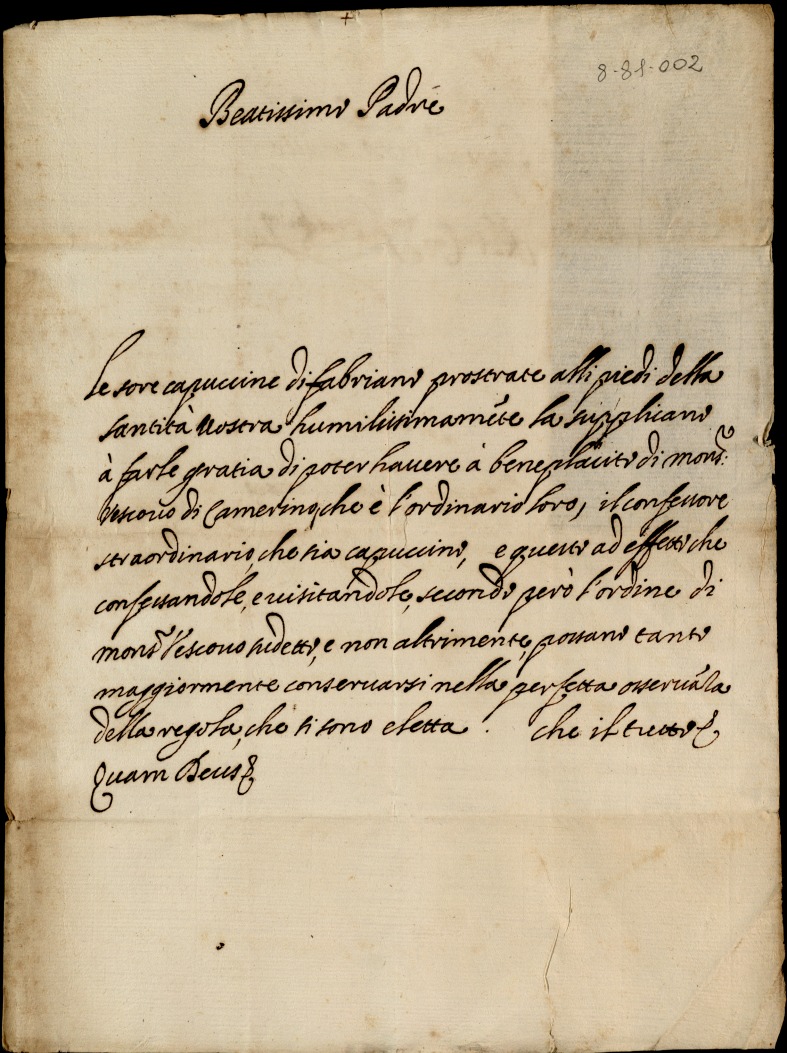 +
8-81-002
Beatissimo Padre
Le sore capuccine di fabriano prostrate alli piedi della
santità Vostra humilissimamẽte la supplicano
à farle gratia di poter havere à beneplacito di mons.r
Vescovo di Camerino, che è l'ordinario loro, il confessore
straordinario, che sia capuccino, e questo ad effetto che
confessandole, e visitandole, secondo però l'ordine di
mons.r Vescovo sudetto, e non altrimente, possano tanto
maggiormente conservarsi nella perfetta osservãza
della regola, che si sono eletta. che il tutto &
Quam Deus &